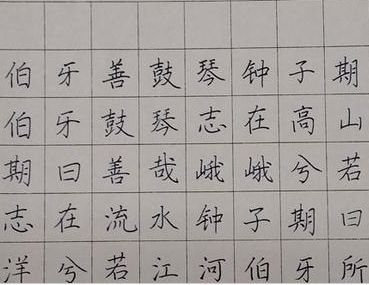 伯牙善鼓琴钟子期
伯牙鼓琴志在高山
期曰善哉峨峨兮若
志在流水钟子期曰
洋兮若江河伯牙所